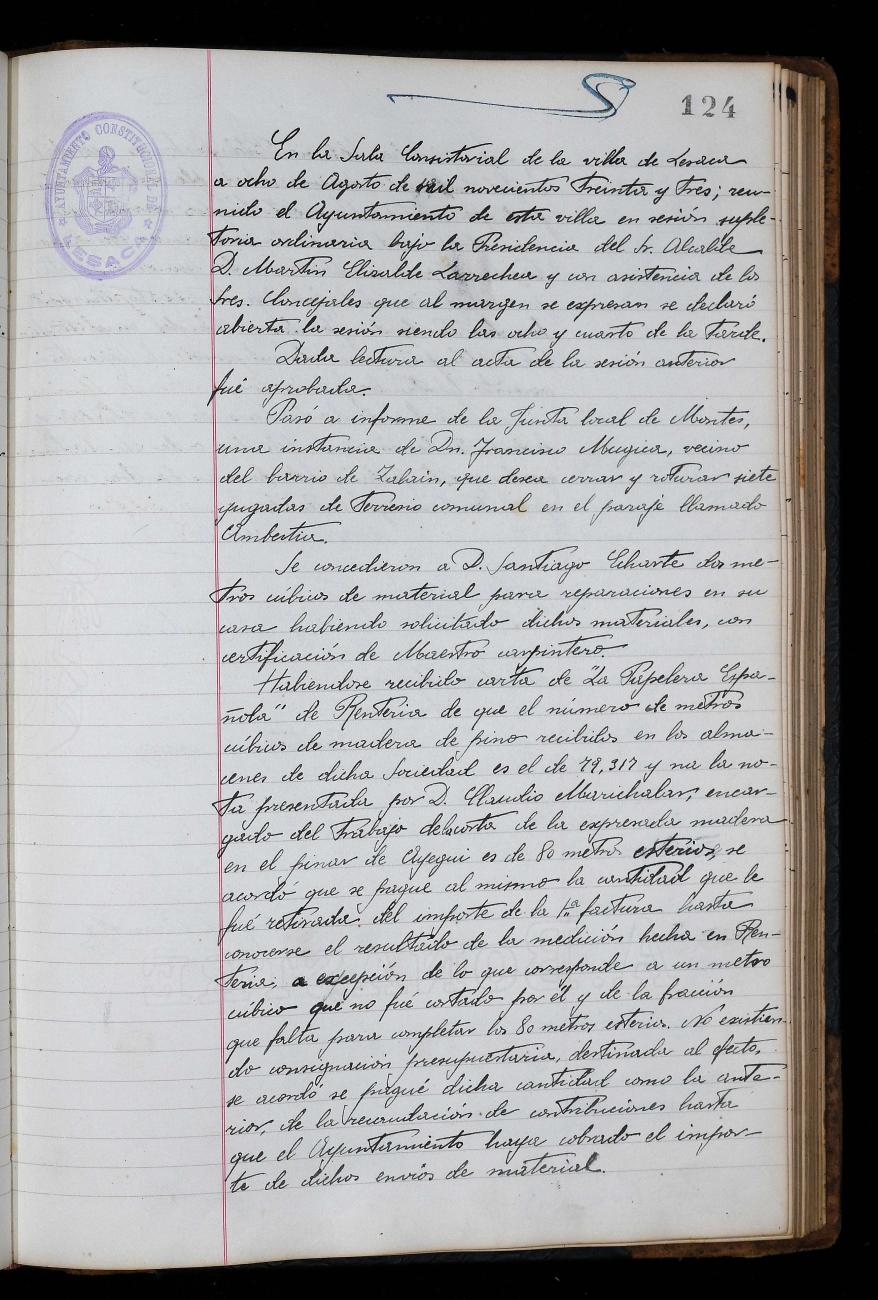 124
AYUNTAMIENTO CONSTITUCIONAL DE
LESACA
En la Sala Consistorial de la villa de Lesaca
a ocho de Agosto de mil novecientos treinta y tres; reu-
nido el Ayuntamiento de esta villa en sesión suple-
toria ordinaria bajo la Presidencia del Sr. Alcalde
D. Martín Elizalde Larrechea y con asistencia de los
Sres. Concejales que al margen se expresan se declaró
abierta la sesión siendo las ocho y cuarto de la tarde.
Dada lectura al acta de la sesión anterior
fué aprobada.
Pasó a informe de la Junta local de Montes,
una instancia de Dn. Francisco Mugica, vecino
del barrio de Zalain, que desea cerrar y roturar siete
yugadas de terreno comunal en el paraje llamado
Ambertia.
Se concedieron a D. Santiago Echarte dos me-
tros cúbicos de material para reparaciones en su
casa habiendo solicitado dichos materiales, con
certificación de Maestro carpintero
Habiendose recibido carta de "La Papelera Espa-
ñola" de Rentería de que el número de metros
cúbicos de madera de pino recibidos en los alma-
cenes de dicha Sociedad es el de 79,317 y na la no-
ta presentada por D. Claudio Marichalar, encar-
gado del trabajo de la corta de la expresada madera
en el pinar de Ayegui es de 80 metros esterios, se
acordó que se pague al mismo la cantidad que le
fué retirada del importe de la 1ª factura hasta
conocerse el resultado de la medición hecha en Ren-
tería, a excepción de lo que corresponde a un metro
cúbico que no fué cortado por él y de la fracción
que falta para completar los 80 metros esterios. No existien-
do consignación presupuestaria, destinada al efecto,
se acordó se pagué dicha cantidad como la ante-
rior, de la recaudación de contribuciones hasta
que el Ayuntamiento haya cobrado el impor-
te de dichos envíos de material.